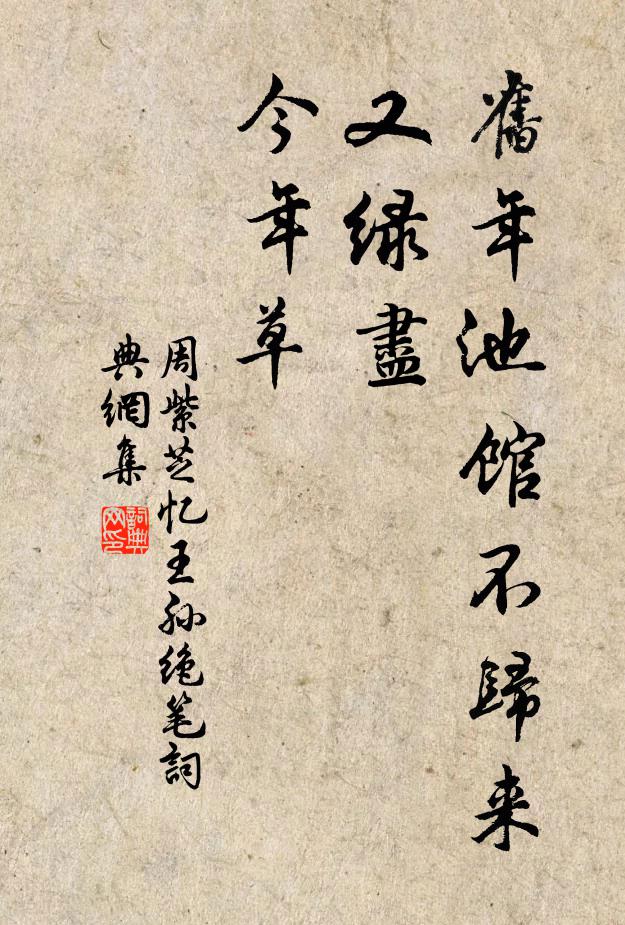 舊年池館不歸来
又緑盡
今年草
周紫芝忆王孙绝笔詞
典網集
詞典
网印